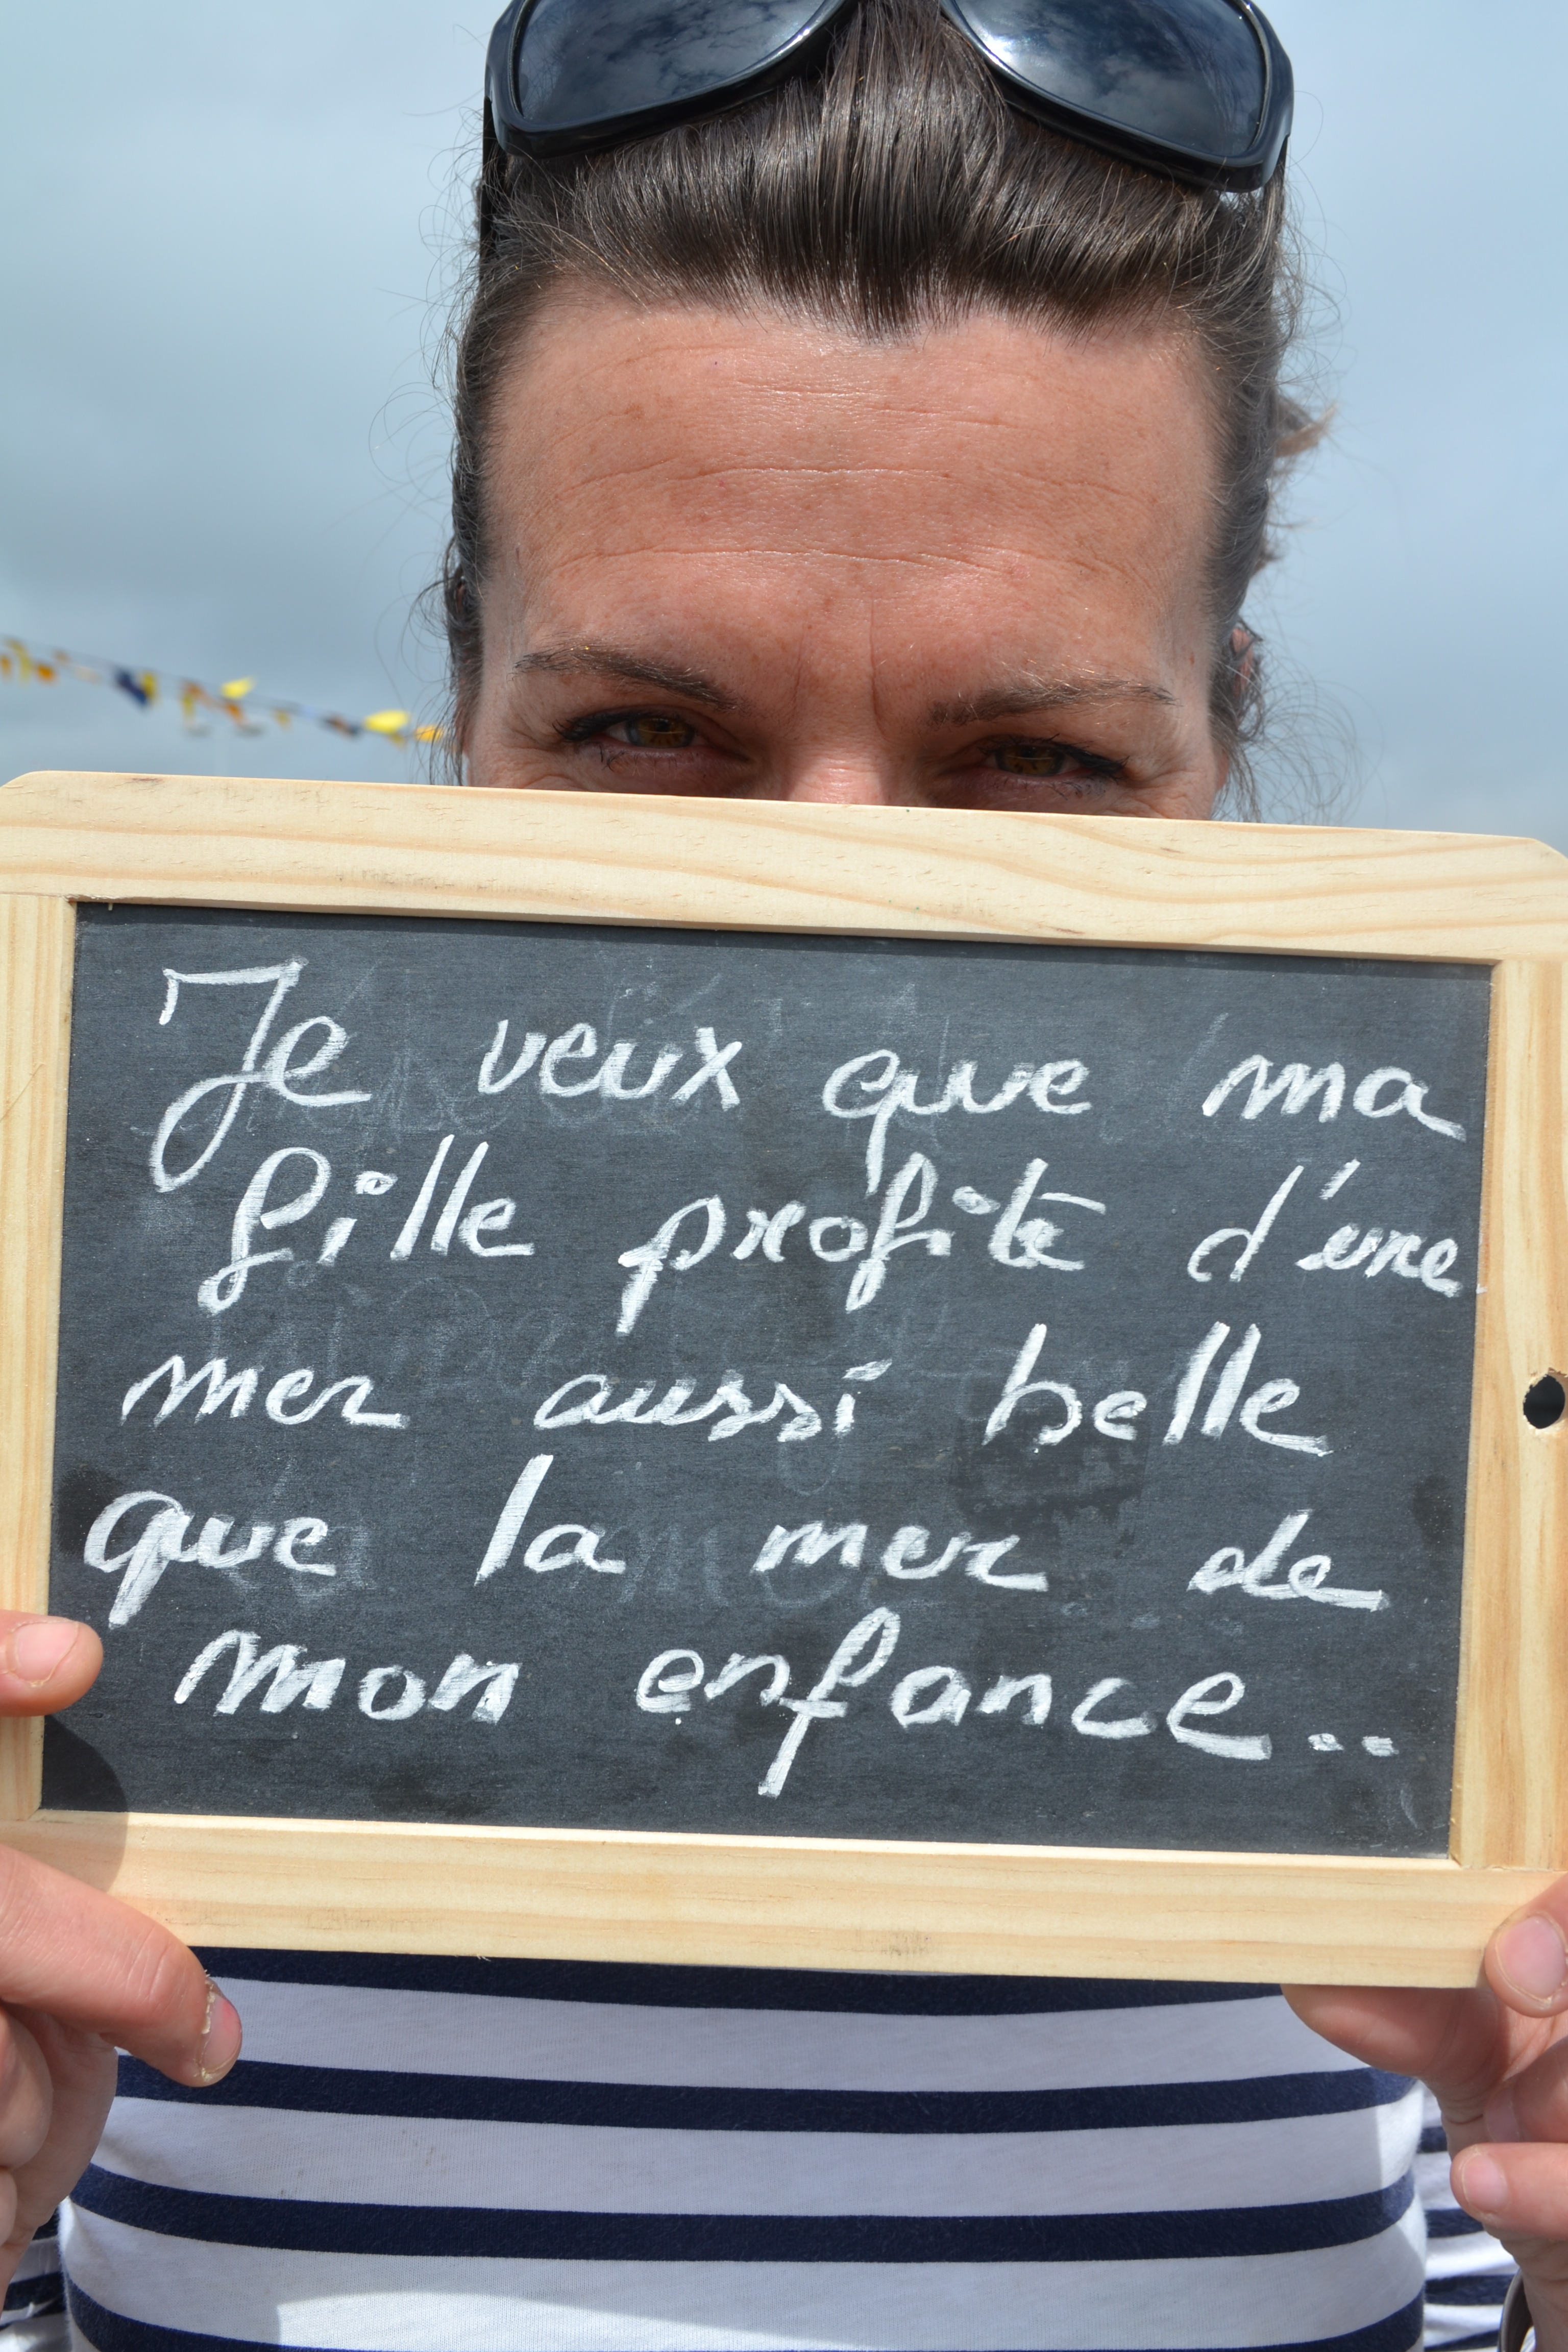 Je veux que ma
fille profite d'une
mer aussi belle
que la mer de
mon enfance..